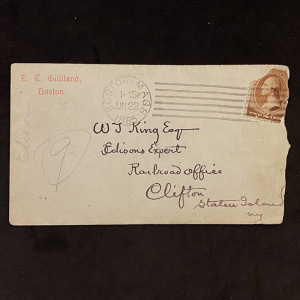 E. T. Gilliland,
Boston.
BOSTON, MASS
1-15P
JUN 22
1885
W J King Esq
Edisons Expert
Railroad Office
Clifton
Staten Island
NY
Edison